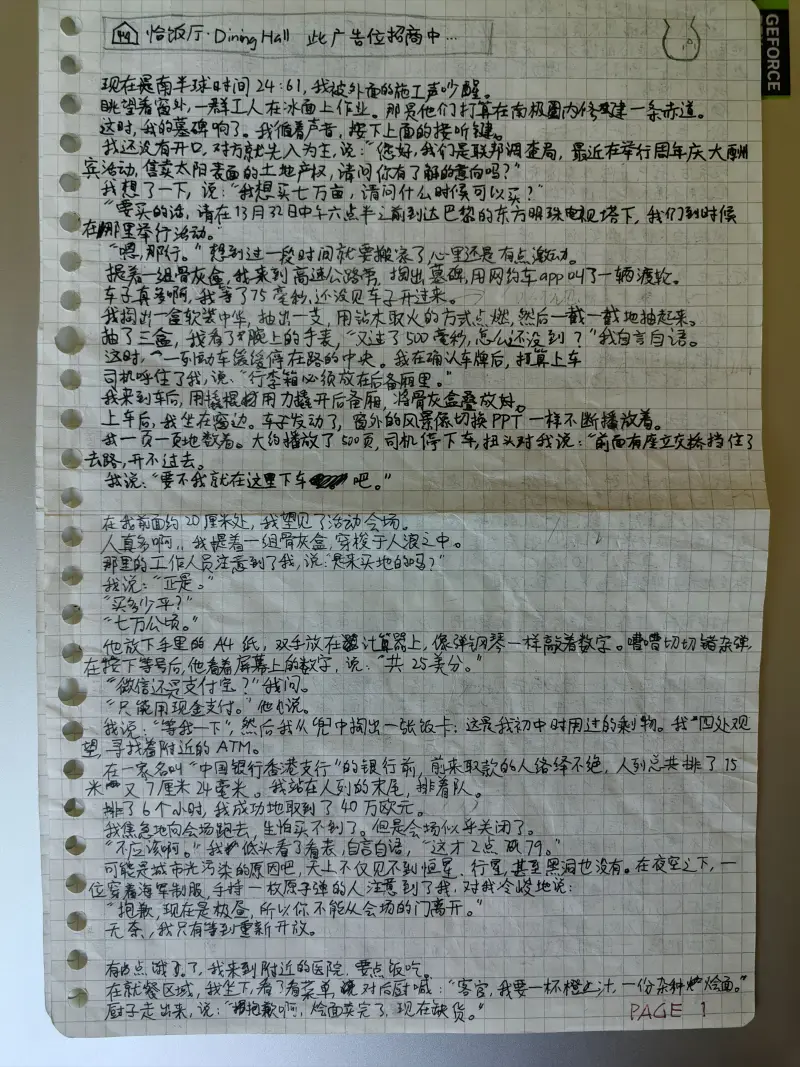 恰饭厅·Dining Hall 此广告位招商中…
GEFORCE
现在是南半球时间24:61,我被外面的施工声吵醒。
眺望着窗外,一群工人在冰面上作业。那是他们打算在南极圈内修建一条赤道。
这时,我的墓碑响了。我循着声音,按下上面的接听键。
我还没有开口,对方就先入为主,说:“您好,我们是联邦调查局,最近在举行周年庆大酬
宾活动,售卖太阳表面的土地产权,请问你有了解的意向吗?”
我想了一下,说:“我想买七万亩,请问什么时候可以买?”
“要买的话,请在13月32日中午六点半之前到达巴黎的东方明珠电视塔下,我们到时候
在那里举行活动。”
“嗯,那行。”想到过一段时间就要搬家了,心里还是有点激动。
提着一组骨灰盒,我来到高速公路旁,掏出墓碑,用网约车app叫了一辆渡轮。
车子真多啊,我等了75毫秒,还没见车子开过来。
我掏出一盒软装中华,抽出一支,用钻木取火的方式点燃,然后一截一截地抽起来。
抽了三盒,我看了腕上的手表,“又过了500毫秒,怎么还没到?”我自言自语。
这时,一列动车缓缓停在路的中央。我在确认车牌后,打算上车
司机呼住了我,说:“行李箱必须放在后备厢里。”
我来到车后,用撬棍用力撬开后备厢,将骨灰盒叠放好。
上车后,我坐在窗边。车子发动了,窗外的风景像切换PPT一样不断播放着。
我一页一页地数着。大约播放了500页,司机停下车,扭头对我说:“前面有座立交桥挡住了
去路,开不过去。
我说:“要不我就在这里下车吧。”
在我前面约20厘米处,我望见了活动会场。
人真多啊,我提着一组骨灰盒,穿梭于人浪之中。
那里的工作人员注意到了我,说:“是来买地的吗?”
我说:“正是。”
“买多少平?”
“七万公顷。”
他放下手里的A4纸,双手放在计算器上,像弹钢琴一样敲着数字。嘈嘈切切错杂弹,
在按下等号后,他看着屏幕上的数字,说:“共25美分。”
“微信还是支付宝?”我问。
“只能用现金支付。”他说。
我说:“等我一下”,然后我从兜中掏出一张饭卡:这是我初中时用过的剩物。我四处观
望,寻找着附近的ATM。
在一家名叫“中国银行香港支行”的银行前,前来取款的人络绎不绝,人列总共排了15
米又7厘米24毫米。我站在人列的末尾,排着队。
排了6个小时,我成功地取到了40万欧元。
我焦急地向会场跑去,生怕买不到了。但是会场似乎关闭了。
“不应该啊。”我低头看了看表,自言自语,“这才2点79。”
可能是城市光污染的原因吧,天上不仅见不到恒星、行星,甚至黑洞也没有。在夜空之下,一
位穿着海军制服,手持一枚原子弹的人注意到了我,对我冷峻地说:
“抱歉,现在是极昼,所以你不能从会场的门离开。”
无奈,我只有等到重新开放。
有点饿了,我来到附近的医院,要点饭吃。
在就餐区域,我坐下,看了看菜单,对后厨喊:“客官,我要一杯橙汁,一份杂料烩面。”
厨子走出来,说:“抱歉啊,烩面卖完了,现在缺货。”
PAGE 1